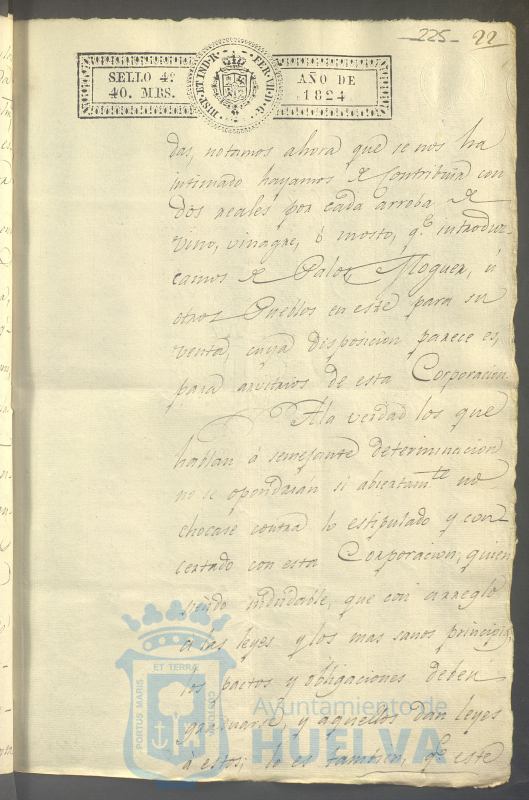 225- 22
SELLO 4º
40. MRS.
HISP. ET IND. R. FER. VII D. G.
AÑO DE
1824
das, notamos ahora que se nos ha
intimado hayamos de Contribuir con
dos reales por cada arroba de
vino, vinagre, ó mosto, qe. introduz-
camos de Palos, Moguer, ú
otros Pueblos en este para su
venta, cuya disposicion parece es,
para arvitrios de esta Corporacion.
A la verdad los que
hablan á semejante determinacion
no se opondrán si abiertamte. no
chocase contra lo estipulado y con-
certado con esta Corporacion, quien
siendo indudable, que con arreglo
a las leyes y los mas sanos principios
los pactos y obligaciones deben
guardarse, y aquellos dan leyes
á estos; lo es tambien, qe. este
PORTUS MARIS
ET TERRÆ
CUSTODIA
Ayuntamiento de
HUELVA